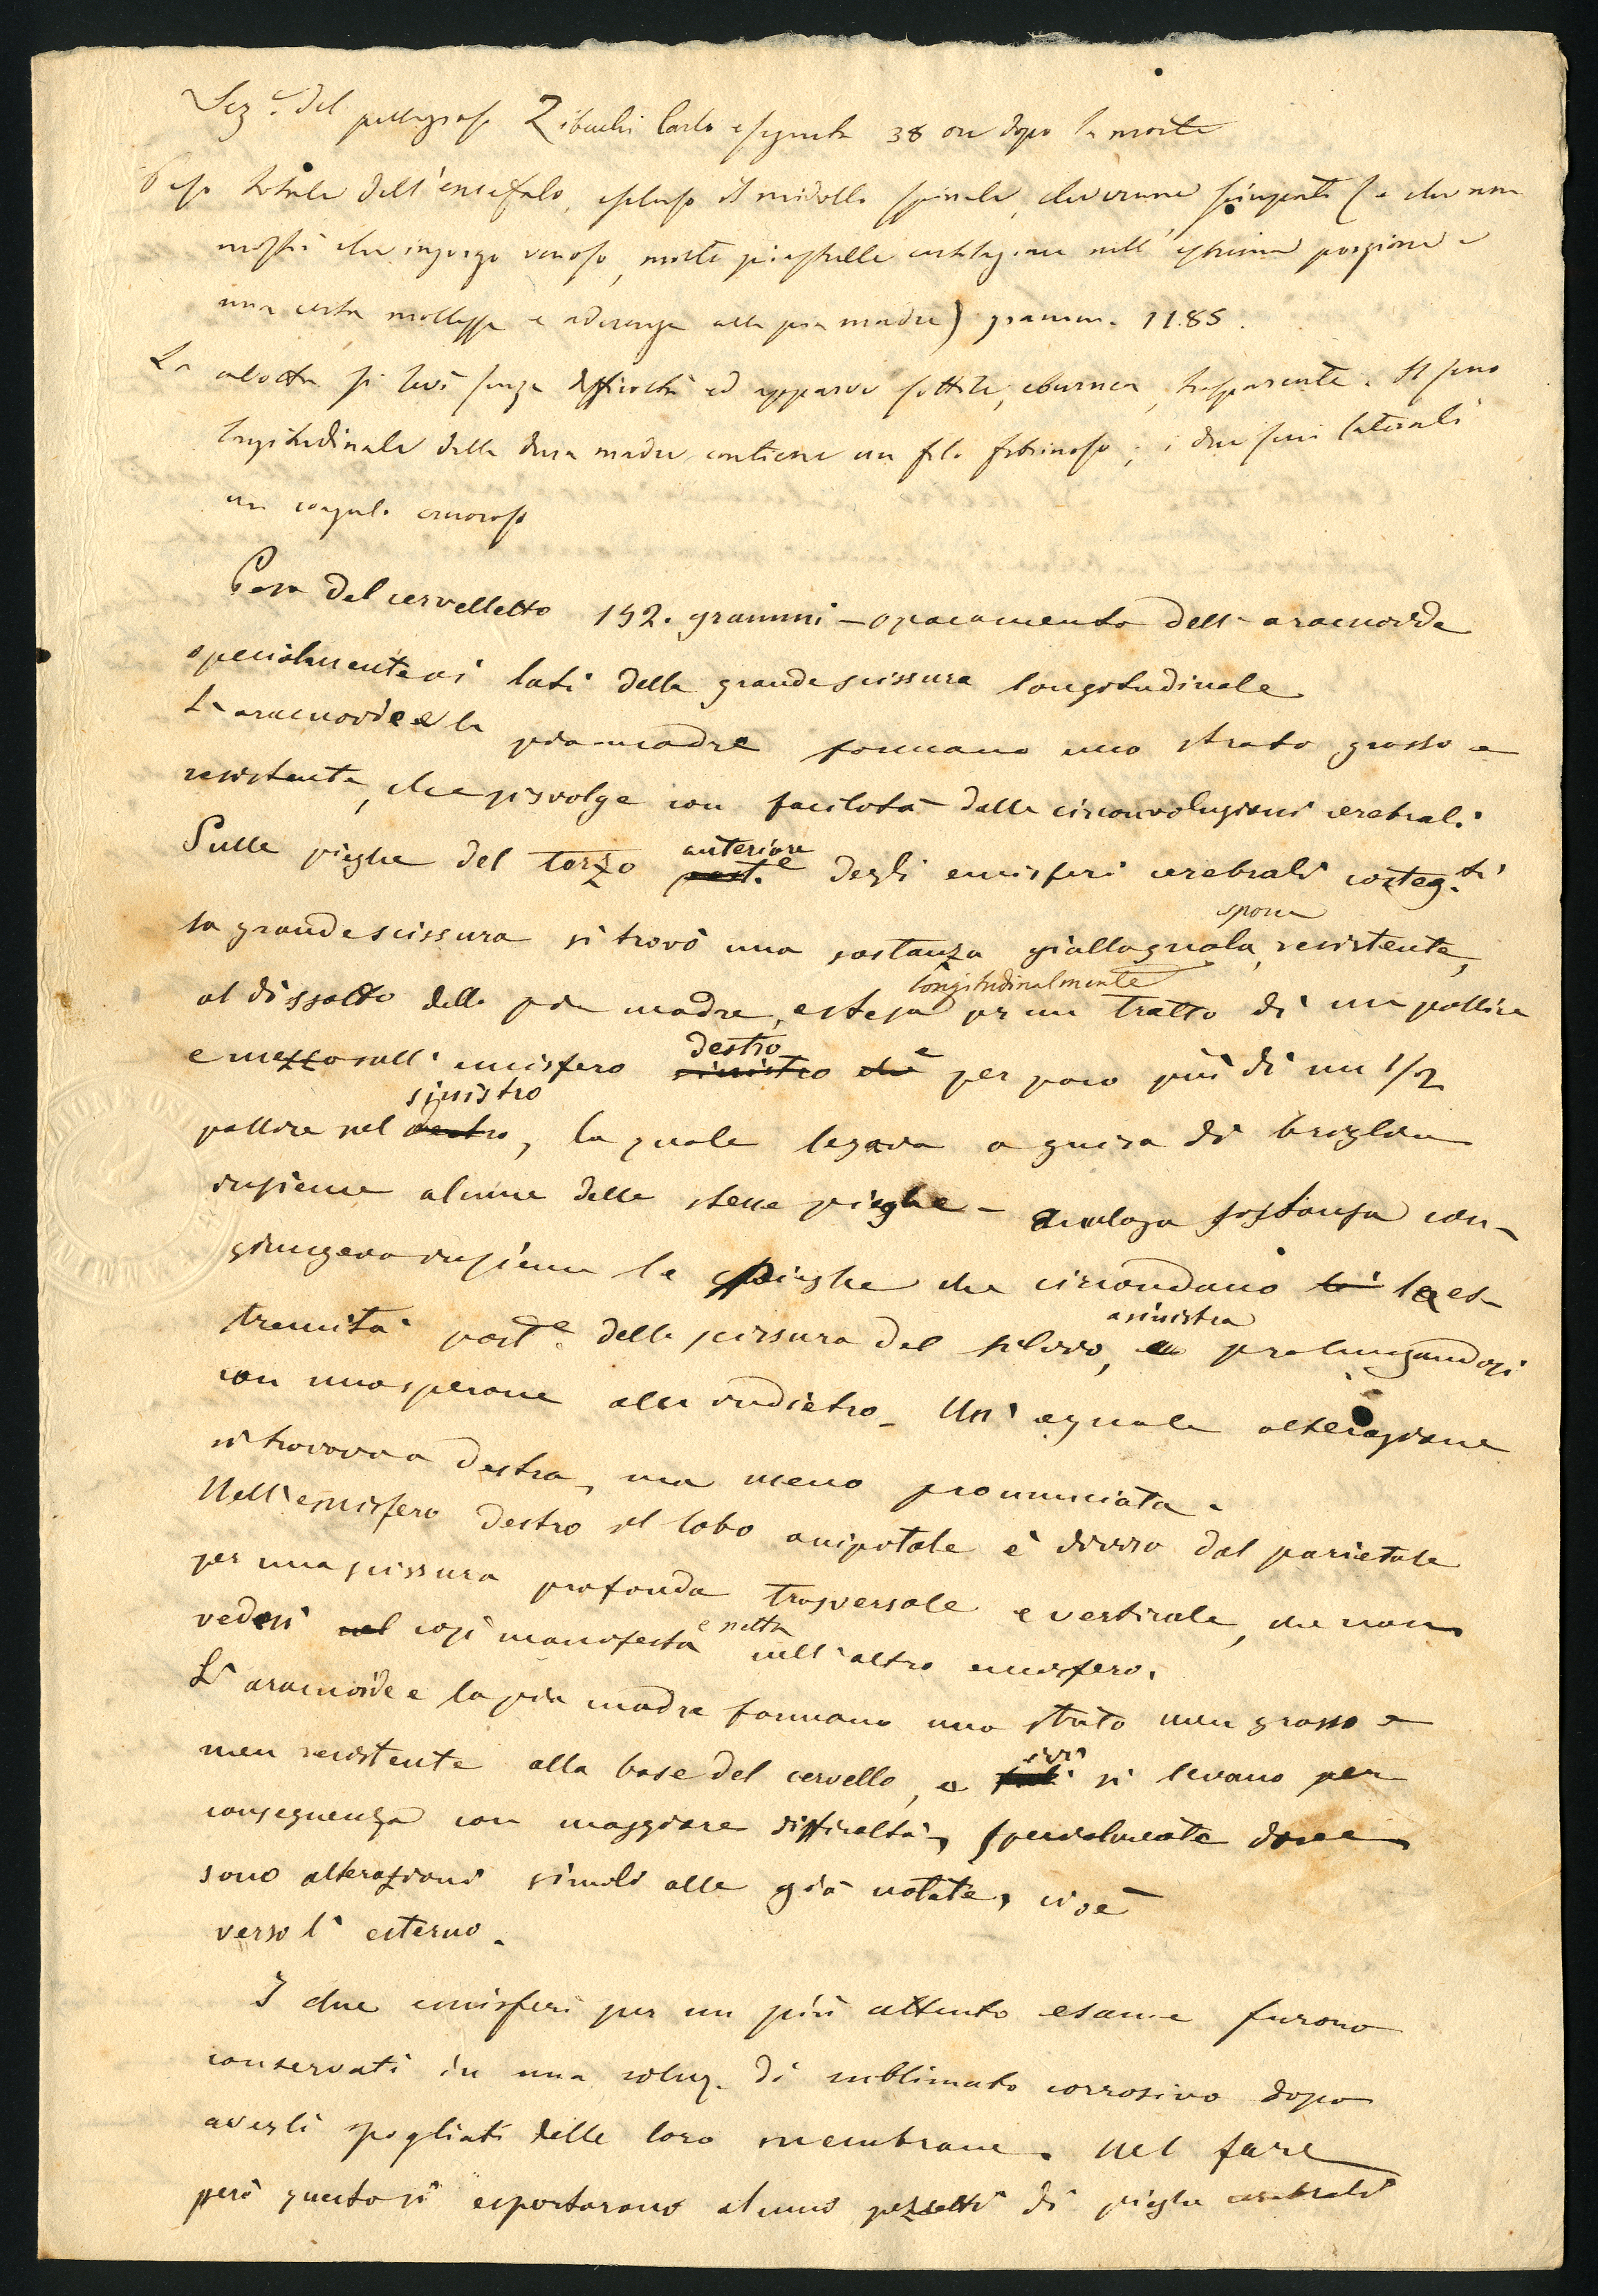 Sez.e del pellagroso Zibuchi Carlo eseguita 38 ore dopo la morte
Peso totale dell'encefalo, escluso il midollo spinale, che venne (e che non
mostrò che ingorgo venoso, molte piastrelle cartilaginee nell' estrema porzione e
una certa mollezza e aderenza alla pia madre) gramm. 1185.
La calotta si levò senza difficoltà ed apparve sottile, eburnea, trasparente. Il seno
longitudinale della dura madre contiene un filo fibrinoso; i due seni laterali
un coagulo cruoroso
Peso del cervelletto 152. grammi - opacamento dell'aracnoide
specialmente ai lati della grande scissura longitudinale
L'aracnoide e la pia madre formano uno strato grosso e
resistente, che si svolge con facilità dalle circonvoluzioni cerebrali
Sulle pieghe del terzo anteriore post.e degli emisferi cerebrali costeg.ti
la grande scissura si trovò una sostanza giallagnola, resistente, spora
al dissotto della pia madre, estesa longitudinalmente per un tratto di un pollice
e mezzo sull' emisfero destro sinistro che e per poco più di un 1/2
pollice nel sinistro destro, la quale legava a guisa di briglia
insieme alcune delle stesse pieghe - analoga sostanza con-
giungeva insieme le pieghe che circondano la es-
tremità post.e della scissura del Silvio, a sinistra prolungandosi
con uno sperone allo indietro. Un' eguale alterazione
si trovava a destra, ma meno pronunciata.
Nell'emisfero destro il lobo occipitale è diviso dal parietale
per una scissura profonda trasversale e verticale, che non
vedesi nel così manifesta e netta nell'altro emisfero.
L'aracnoide e la pia madre formano uno strato men grosso e
men resistente alla base del cervello, e ivi si levano per
conseguenza con maggiore difficoltà, specialmente dove
sono alterazioni simili alle già notate, cioè
verso l' esterno.
I due emisferi per un più attento esame furono
conservati in una soluz. di sublimato corrosivo dopo
averli spogliati delle loro membrane. Nel fare
però questo si esportarono alcuni pezzetti di pieghe cerebrali